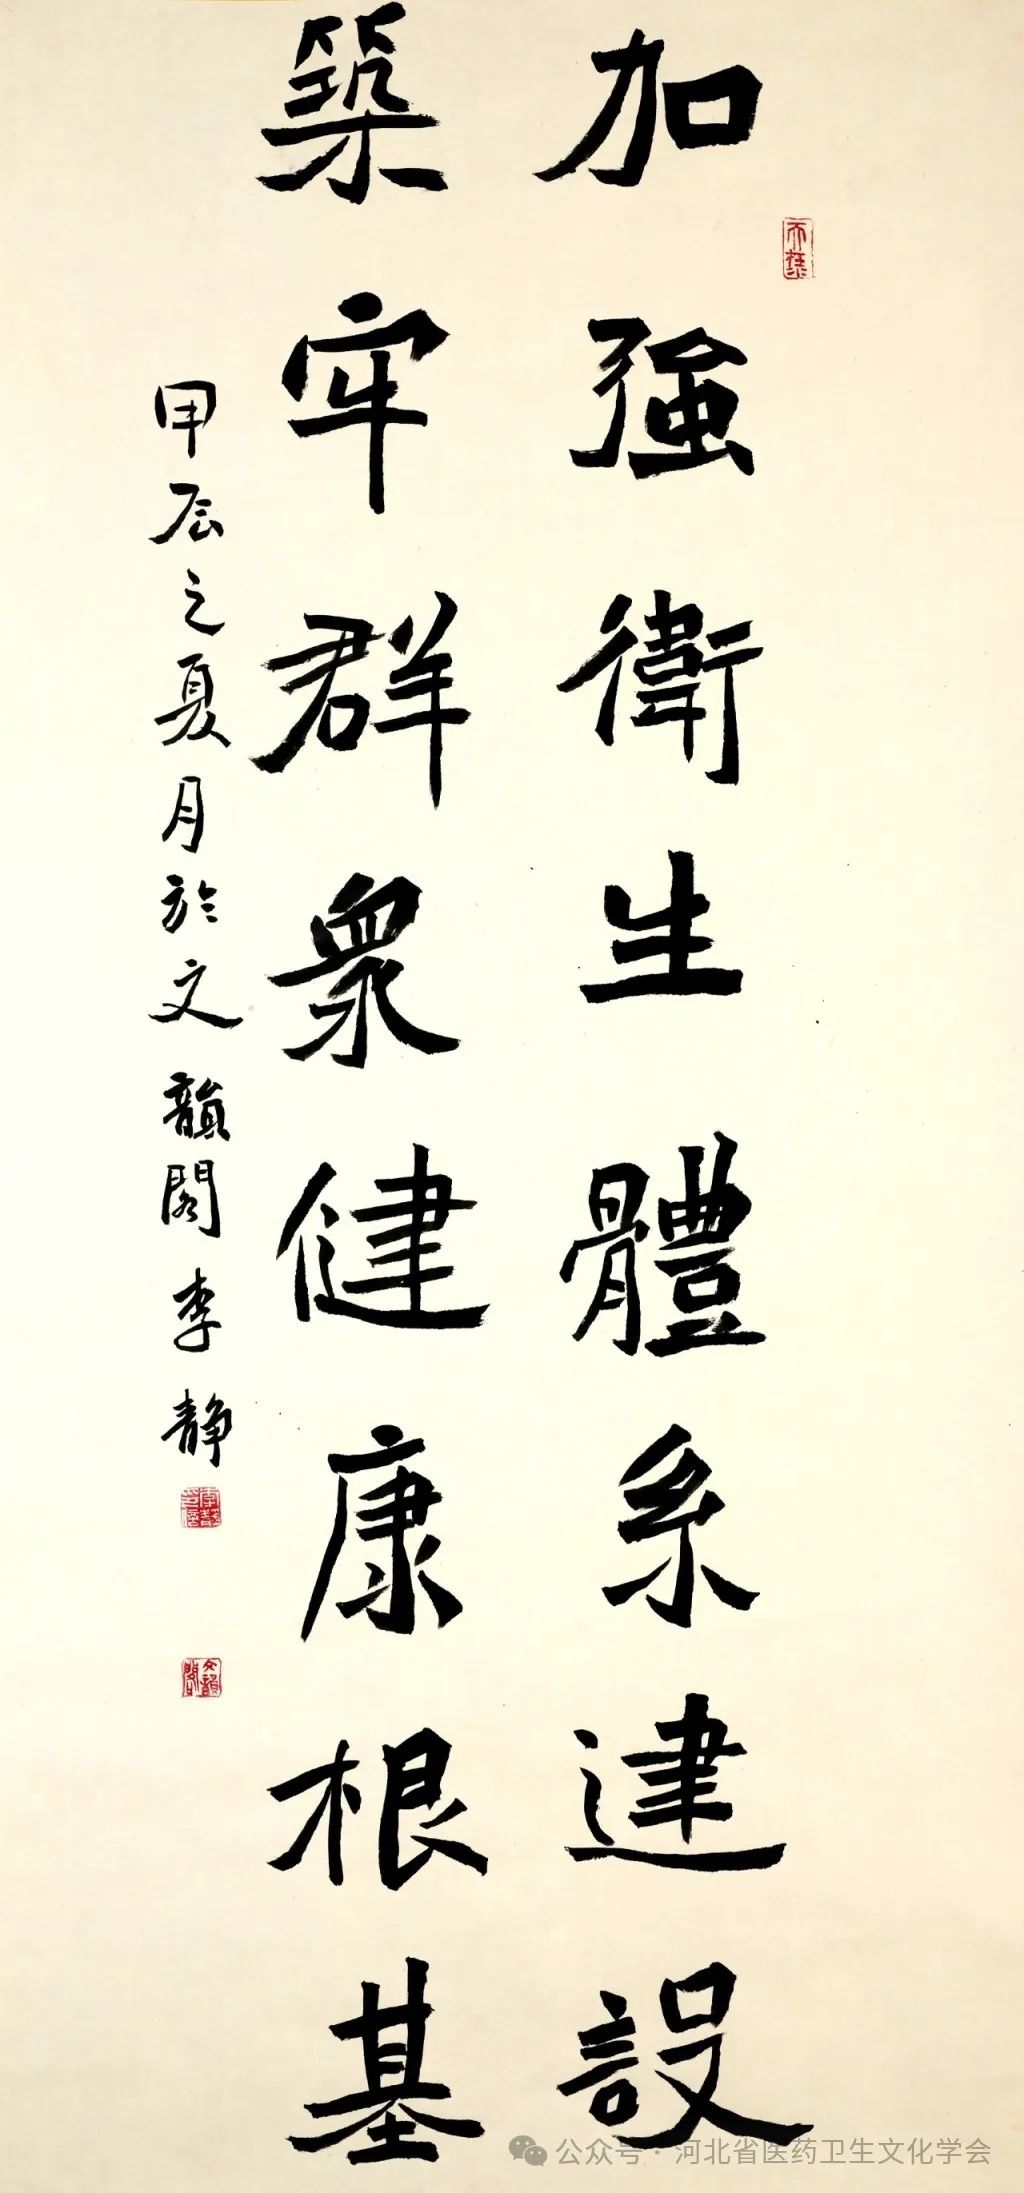 加強衛生體系建設
築牢群衆健康根基
甲辰之夏月於文韻閣李静
公众号·河北省医药卫生文化学会